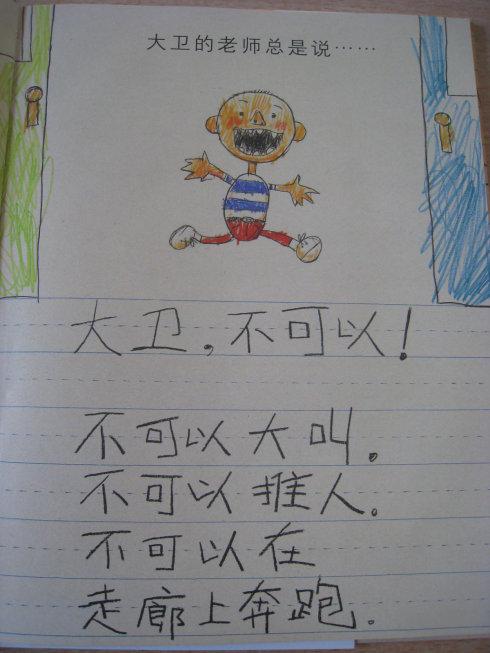 大卫的老师总是说……
大卫,不可以!
不可以大叫。
不可以推人。
不可以在
走廊上奔跑。